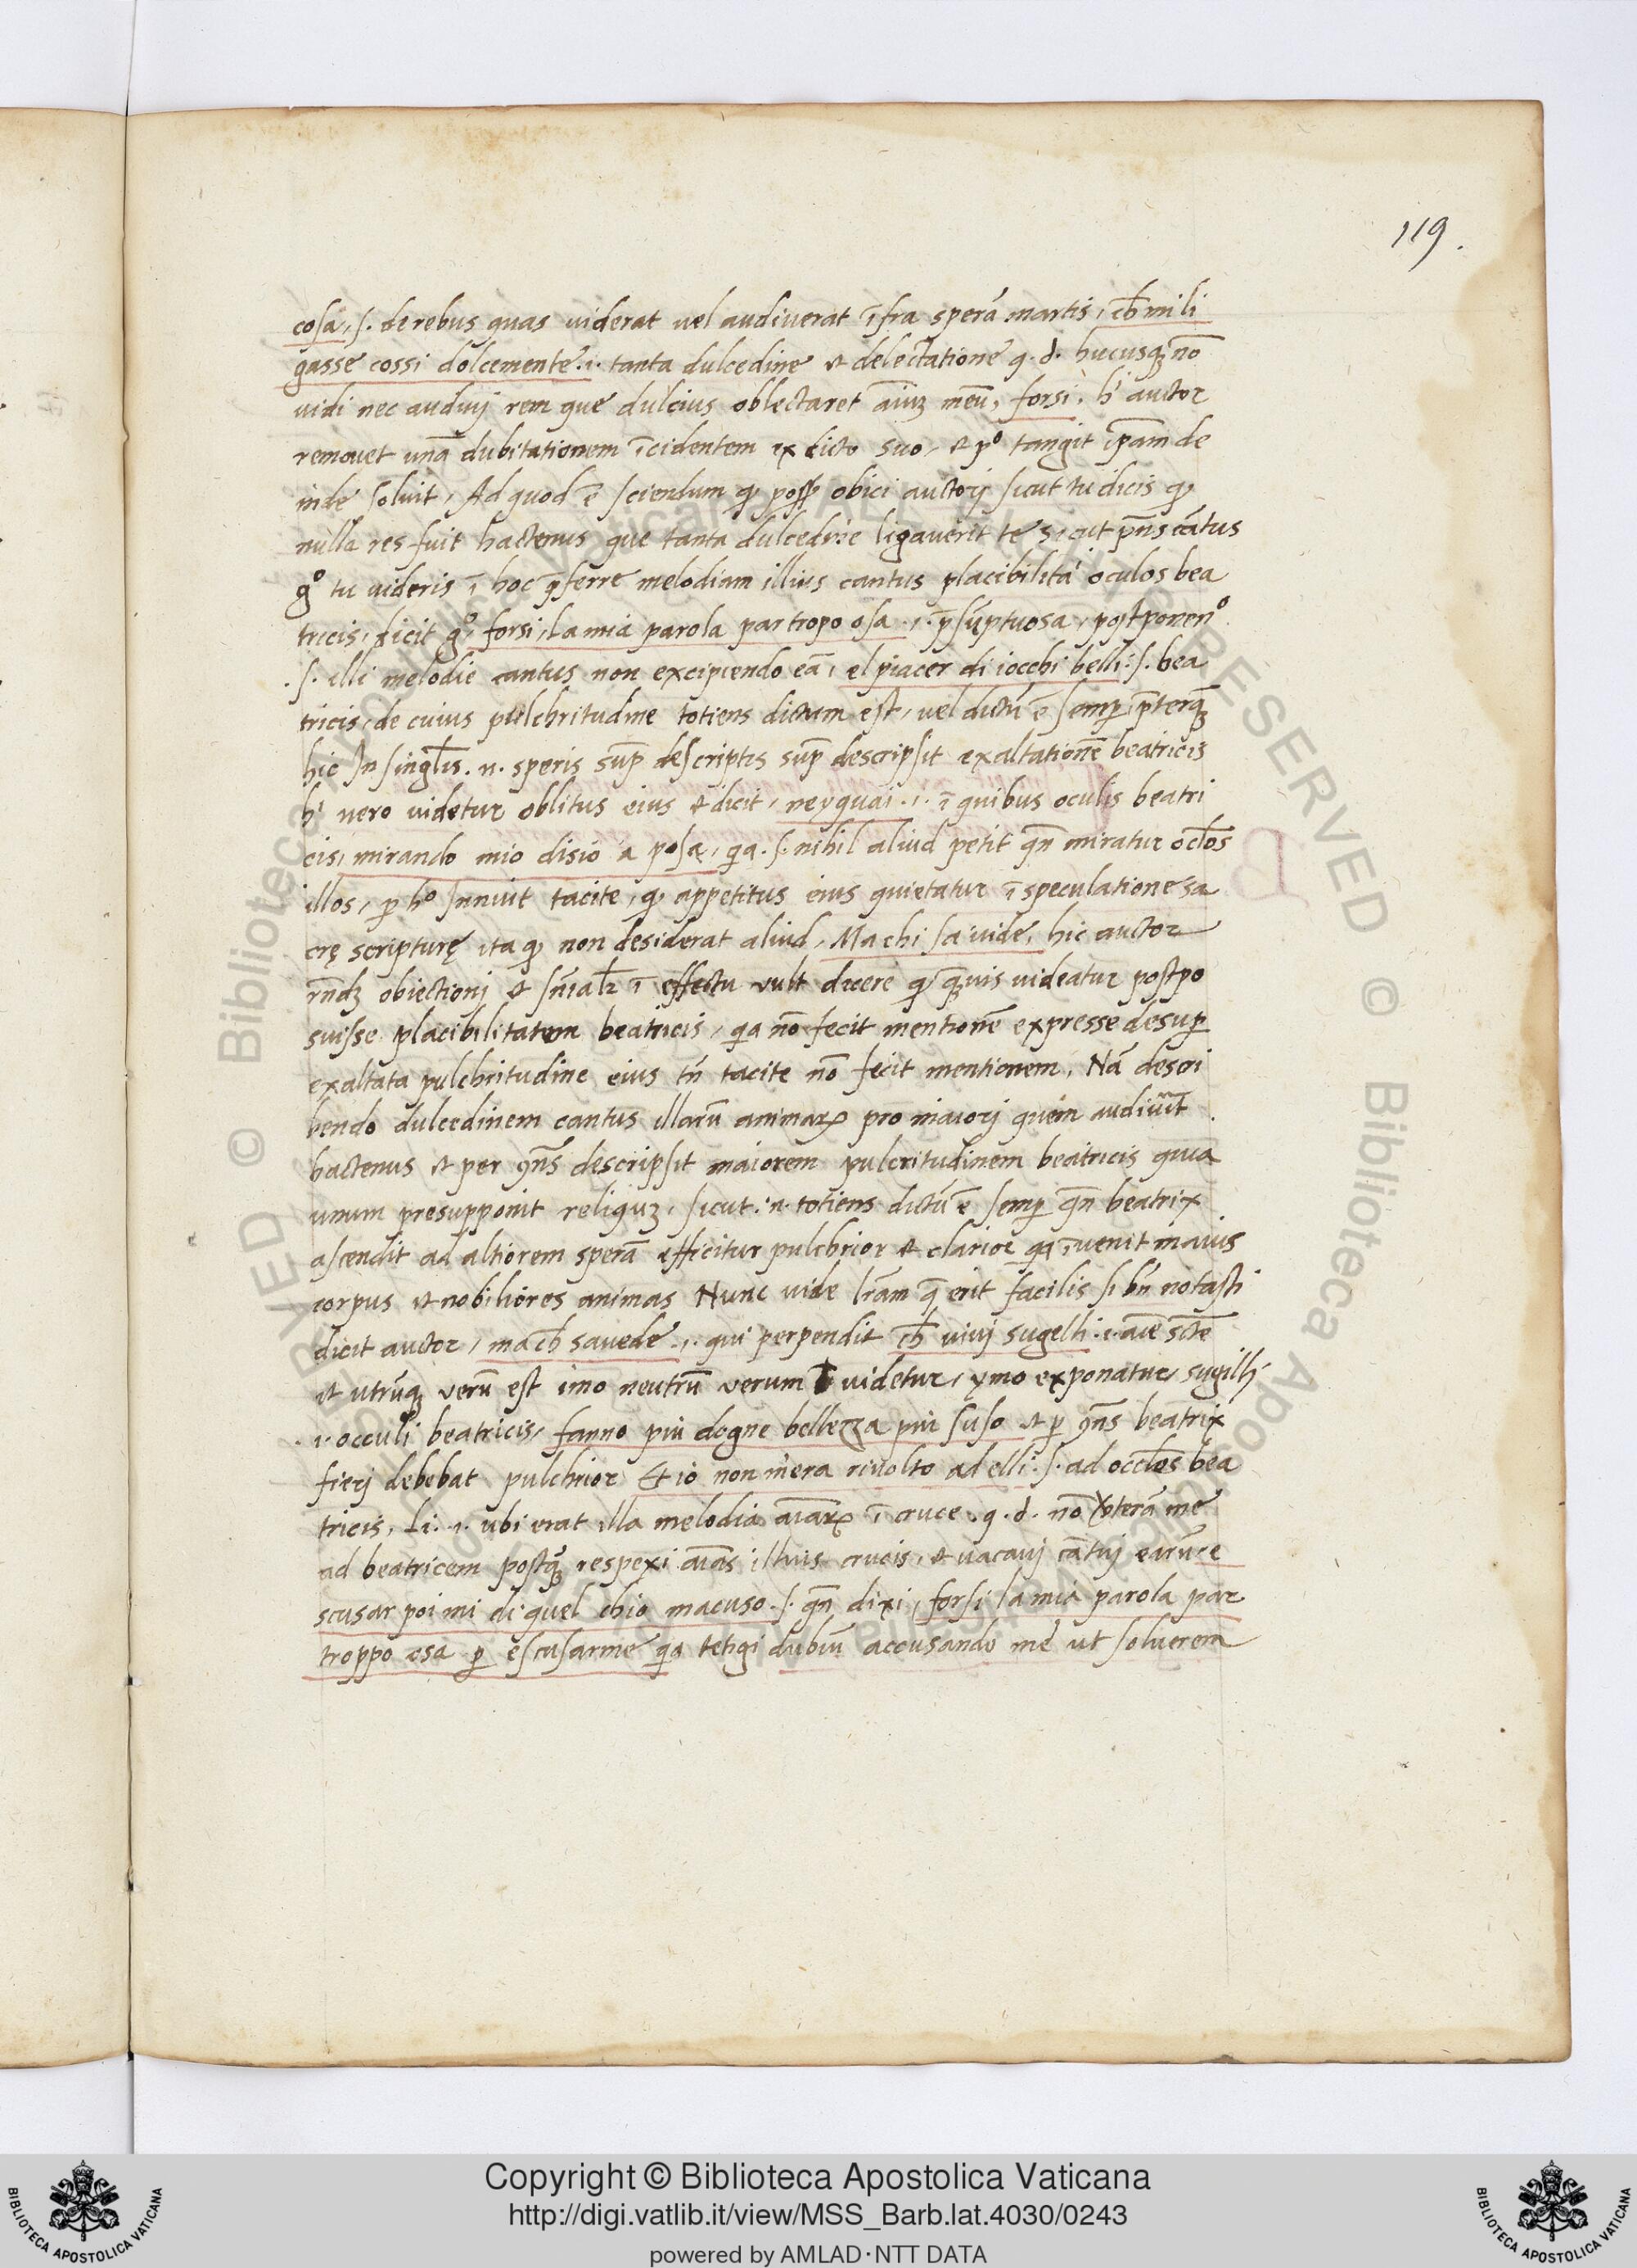 119.
cosa, s. de rebus quas viderat vel audiverat ĩfra sperã martis, cħ mi li
gasse cossi dolcemente .i. tanta dulcedine et delectatione q. d. hucusqꝫ nõ
vidi nec audivj rem que dulcius oblectaret aĩuꝫ meũ, forsi, hͥ auctor
removet unã dubitationem ĩcidentem ex dicto suo, et pº tangit ip̃am de
inde solvit, Ad quod ẽ sciendum ꝙ posꝫ obici auctorj sicut tu dicis ꝙ
nulla res fuit hactenus que tanta dulcedine ligaverit te sicut pñs cãtus
gº tu videris ĩ hoc p̃ferre melodiam illius cantus placibilita' oculos bea
tricis, dicit gº, forsi, la mia parola par tropo osa .i. p̃sũptuosa, postponenº
.s. illi melodie cantus non excipiendo eã, el piacer di iocchi belli .s. bea
tricis, de cuius pulchritudine totiens dictum est, vel dictũ ẽ semp̱ p̃terqꝫ
hic In singl̃is .n. speris sup̃ descriptis sup̃ descripsit exaltationẽ beatricis
hͥ vero videtur oblitus eius et dicit, neyquai .i. ĩ quibus oculis beatri
cis, mirando mio disio a posa, qa .s. nihil aliud petit qñ miratur ocl̃os
illos, p̱ hº Innuit tacite, ꝙ appetitus eius quietatur ĩ speculatione sa
crę scripturę ita ꝙ non desiderat aliud, Ma chi sa vide, hic auctor
rñdꝫ obiectionj et sñialr̃ ĩ effectu vult dicere ꝙ qꝫvis videatur postpo
suisse placibilitatem beatricis, qa nõ fecit mentionẽ expresse de sup̱
exaltata pulchritudine eius tñ tacite nõ fecit mentionem, Nã descri
bendo dulcedinem cantus illarũ animarꝝ pro maiorj quem audivit
hactenus et per ꝯñs descripsit maiorem pulcritudinem beatricis quia
unum presupponit reliquꝫ, sicut .n. totiens dictũ ẽ semp̱ qñ beatrix
ascendit ad altiorem sperã efficitur pulchrior et clarior qa ĩvenit maius
corpus et nobiliores animas Nunc vide lr̃am q̃ erit facilis si bñ notasti
dicit auctor, ma cħ savede .i. qui perpendit cħ vivj sugelli .i. aĩe sc̃te
et utrũqꝫ verũ est imo neutrũ verum videtur, ymo exponatur, sugilli
.i. occuli beatricis, fanno piu dogne bellezza piu suso et p̱ ꝯñs beatrix
fierj debebat pulchrior Et io non mera rivolto ad elli .s. ad occl̃os bea
tricis, Li .i. ubi erat illa melodia aĩarꝝ ĩ cruce . q. d. nõ v̾terã me
ad beatricem postqꝫ respexi aĩas illius crucis, et vacavj cãtuj earũ, e
scusar poi mi di quel chio macuso .s. qñ dixi, forsi la mia parola par
troppo osa p̱ escusarme qa tetigi dubiũ accusando me ut solverem
Copyright © Biblioteca Apostolica Vaticana
http://digi.vatlib.it/view/MSS_Barb.lat.4030/0243
powered by AMLAD·NTT DATA